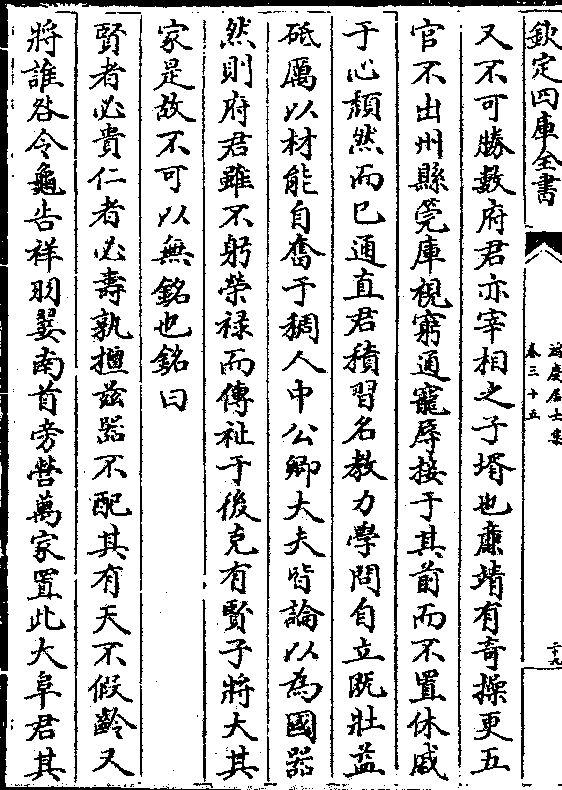 欽定四庫全書
鴻慶居士集
卷三十五
三十九
又不可勝數府君亦宰相之子壻也廉靖有奇操更五
官不出州縣筦庫視窮通寵辱接于其前而不置休戚
于心頹然而已通直君積習名教力學問自立既壯益
砥厲以材能自奮于稠人中公卿大夫皆論以為國器
然則府君雖不躬榮祿而傳祉于後克有賢子將大其
家是故不可以無銘也銘曰
賢者必貴仁者必壽孰擅兹器不配其有天不假齡又
將誰咎令龜告祥羽嬰南首旁營萬家置此大阜君其